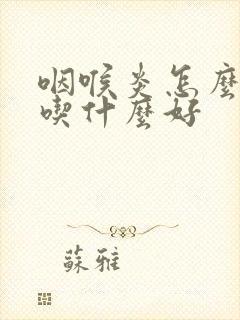 咽喉炎怎麼
喫什麼好
蘇雅